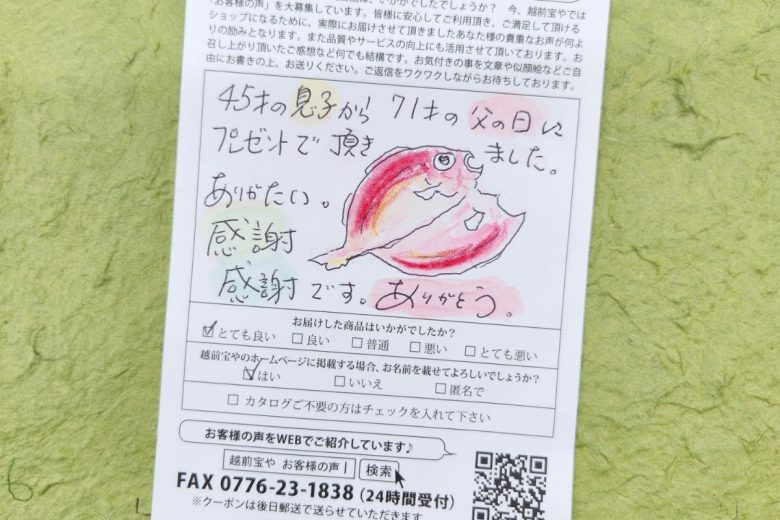 商品は、いかがでしたでしょうか？ 今、越前宝やでは
「お客様の声」を大募集しています。皆様に安心してご利用頂き、ご満足して頂ける
ショップになるために、実際にお届けさせて頂きましたあなた様の貴重なお声が何よ
りの励みとなります。また品質やサービスの向上にも活用させて頂いております。お
召し上がり頂いたご感想など何でも結構です。お気付きの事を文章や似顔絵などご自
由にお書きの上、お送りください。ご返信をワクワクしながらお待ちしております。
45才の息子から 71才の父の日に
プレゼントで頂きました。
ありがたい。
感謝
感謝です。ありがとう。
お届けした商品はいかがでしたか？
とても良い 良い 普通 悪い とても悪い
越前宝やのホームページに掲載する場合、お名前を載せてよろしいでしょうか？
はい いいえ 匿名で
カタログご不要の方はチェックを入れて下さい
お客様の声をWEBでご紹介しています♪
越前宝や お客様の声 検索
FAX 0776-23-1838（24時間受付）
※クーポンは後日郵送で送らせていただきます